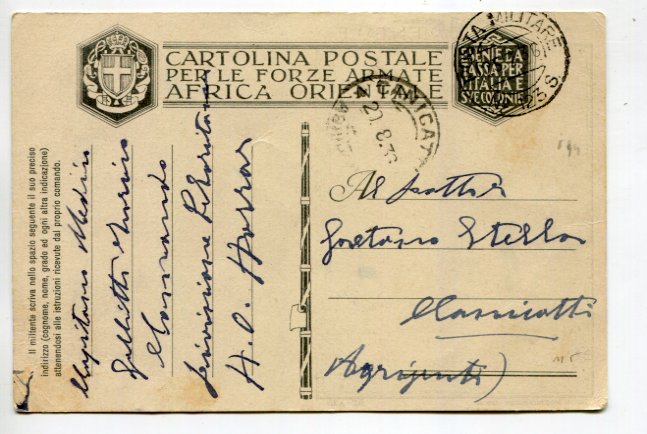 CARTOLINA POSTALE
PER LE FORZE ARMATE
AFRICA ORIENTALE
ESENTE DA
TASSA PER
L'ITALIA E
SUE COLONIE
POSTA MILITARE
CANICATTI
20.8.36
Il militante scriva nello spazio seguente il suo preciso
indirizzo (cognome, nome, grado ed ogni altra indicazione)
attenendosi alle istruzioni ricevute dal proprio comando.
Capitano Medico
Comando
Divisione
A.O. Harrar
Al Dottor
Gaetano Stella
Canicatti
Agrigento)